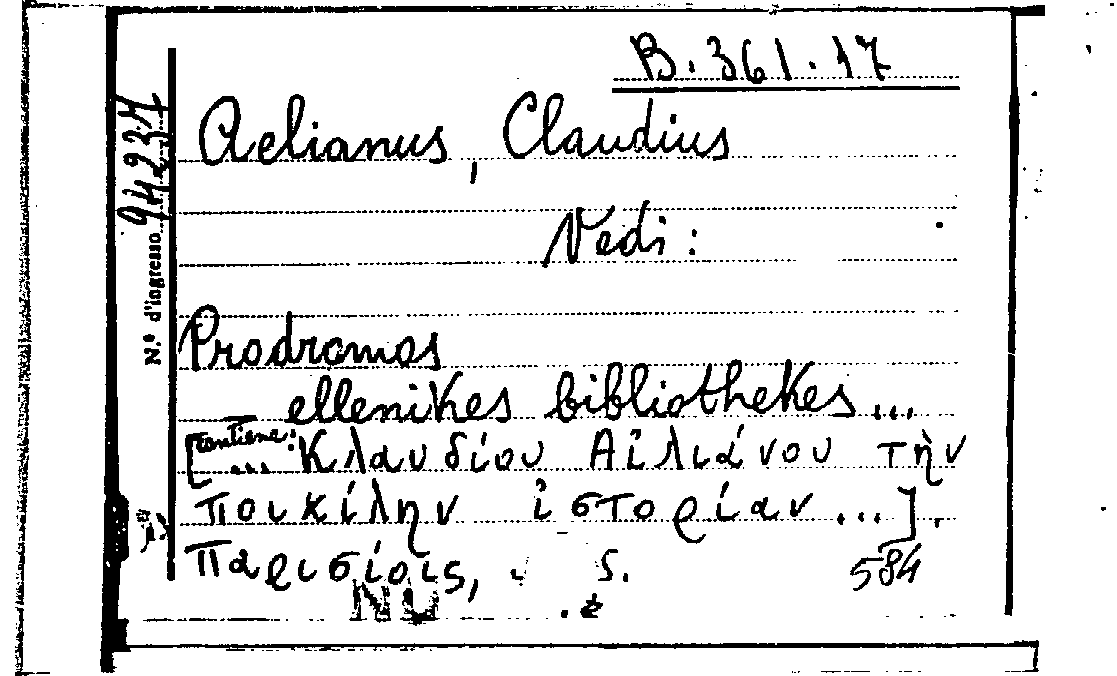 B. 361. 17
Aelianus, Claudius
Vedi:
Prodromos
ellenikes bibliothekes...
[contiene: ... Κλαυδίου Αἰλιάνου τὴν
ποικίλην ἱστορίαν ...].
Παρισίοις,
584
NU
N.º d'ingresso 94237